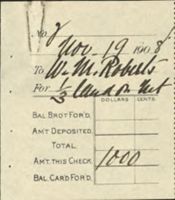 No
Nov-19 1908
To W. M. Roberts
For 1/3 land on
DOLLARS CENTS.
BAL. BROT FOR'D.
AM'T DEPOSITED.
TOTAL
AM'T. THIS CHECK 1000
BAL. CAR'D FOR'D.